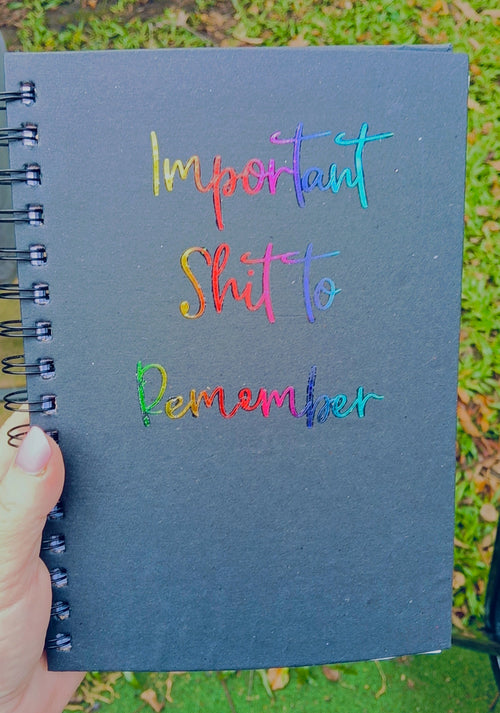 Important
Shit to
Remember